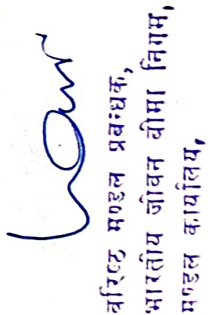 वरिष्ठ मण्डल प्रबन्धक,
भारतीय जीवन बीमा निगम,
मण्डल कार्यालय,